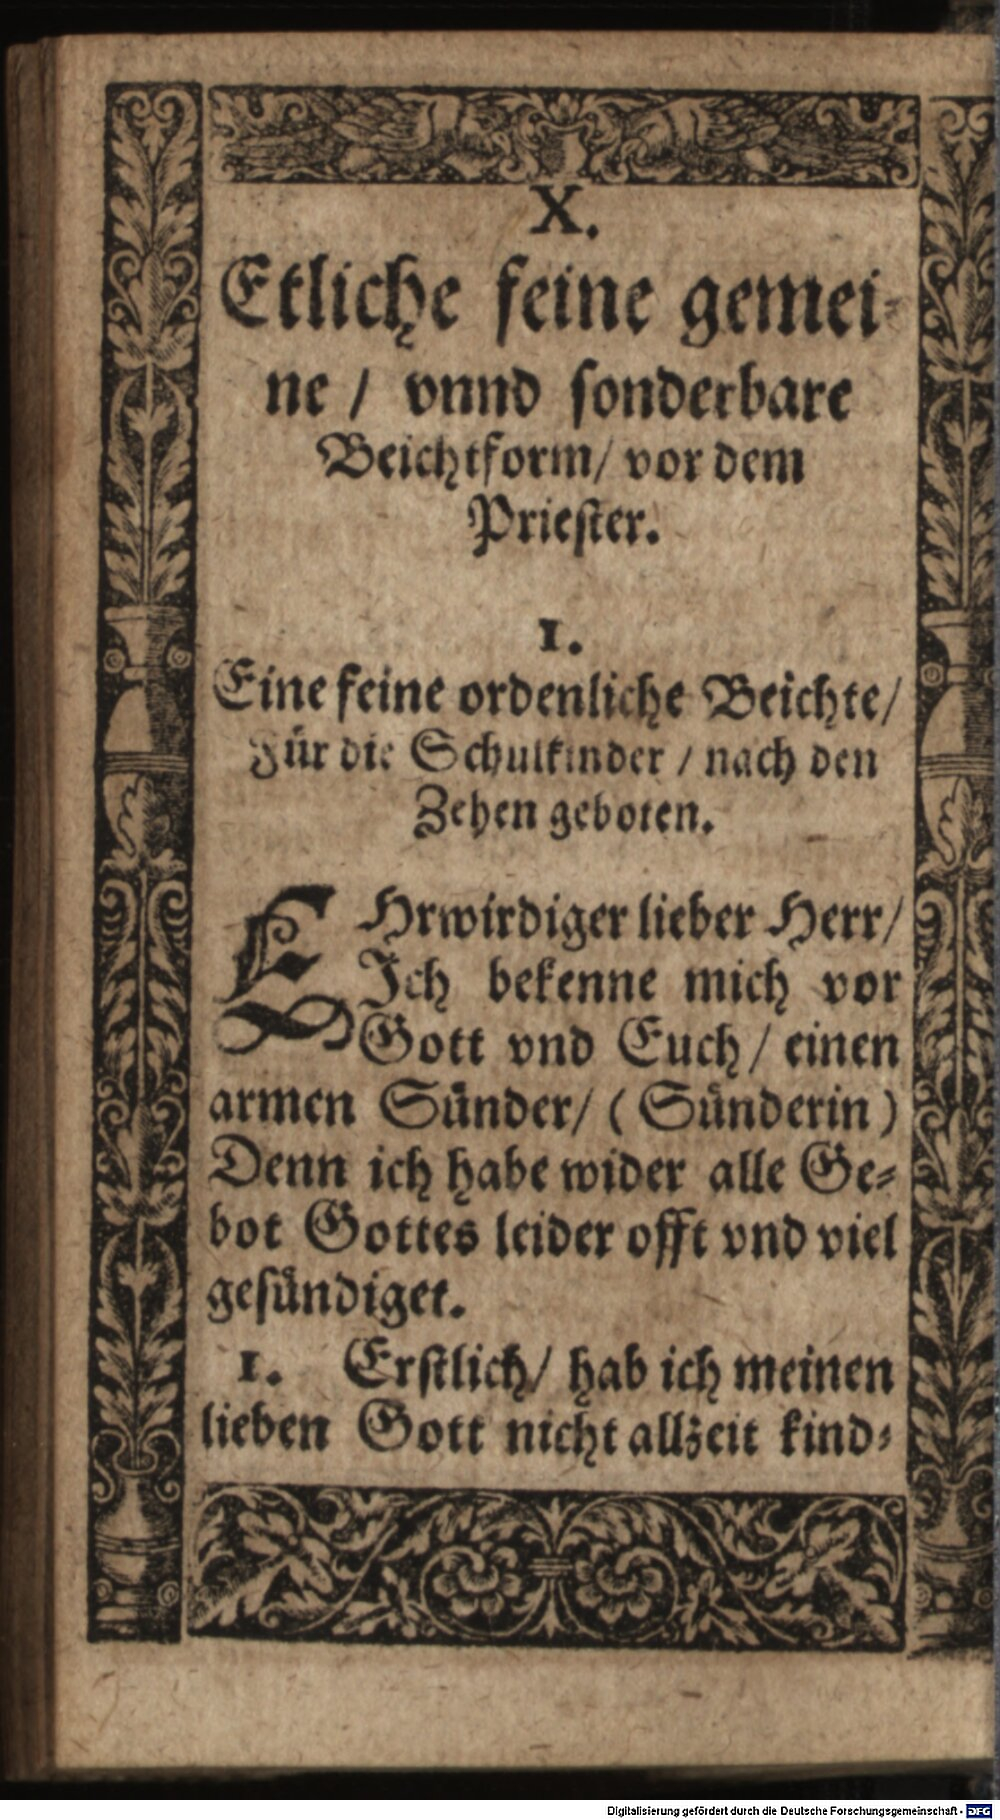 X.
Etliche feine gemei⸗
ne / vnnd sonderbare
Beichtform/ vor dem
Priester.
1.
Eine feine ordenliche Beichte/
Für die Schulkinder / nach den
Zehen geboten.
EHrwirdiger lieber Herr/
Ich bekenne mich vor
Gott vnd Euch/ einen
armen Sünder/ (Sünderin)
Denn ich habe wider alle Ge⸗
bot Gottes leider offt vnd viel
gesündiget.
1. Erstlich/ hab ich meinen
lieben Gott nicht allzeit kind⸗
Digitalisierung gefördert durch die Deutsche Forschungsgemeinschaft - DFG